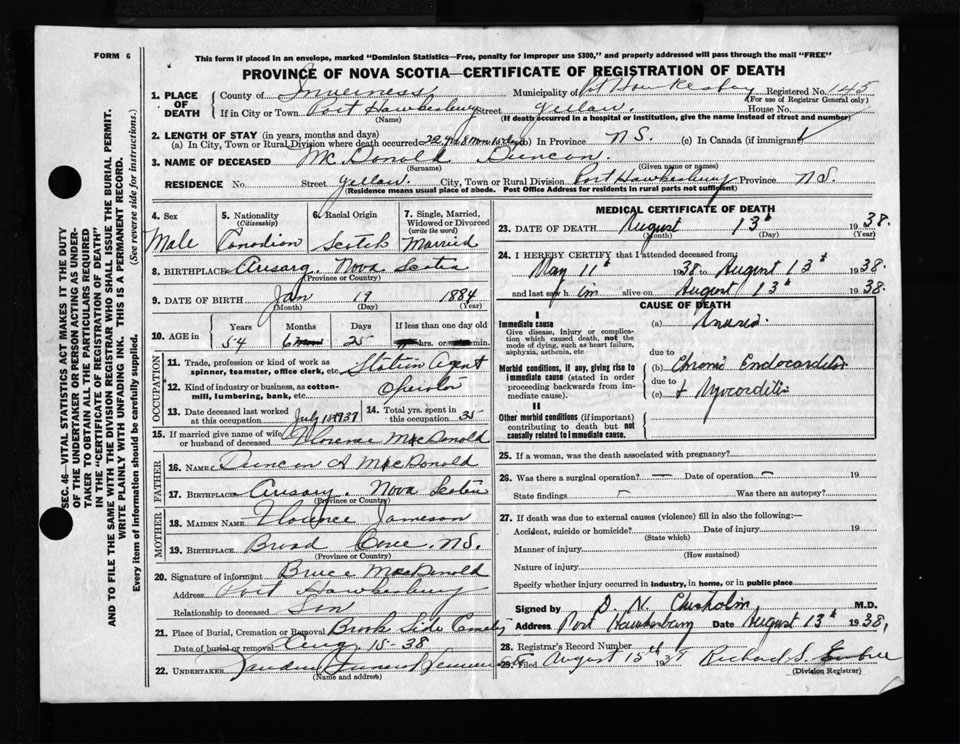 FORM 6
This form if placed in an envelope, marked "Dominion Statistics—Free, penalty for improper use $300," and properly addressed will pass through the mail "FREE"
PROVINCE OF NOVA SCOTIA—CERTIFICATE OF REGISTRATION OF DEATH
1. PLACE OF DEATH County of Inverness Municipality of Port Hawkesbury Registered No. 145
(For use of Registrar General only)
If in City or Town Port Hawkesbury Street Yellow. House No.
(Name) (If death occurred in a hospital or institution, give the name instead of street and number)
2. LENGTH OF STAY (in years, months and days)
(a) In City, Town or Rural Division where death occurred 20 yrs 8 Mon (b) In Province N.S. (c) In Canada (if immigrant)
3. NAME OF DECEASED McDonald Duncan.
(Surname) (Given name or names)
RESIDENCE No. Street Yellow. City, Town or Rural Division Port Hawkesbury Province N.S.
(Residence means usual place of abode. Post Office Address for residents in rural parts not sufficient)
4. Sex 5. Nationality (Citizenship) 6. Racial Origin 7. Single, Married, Widowed or Divorced (write the word)
Male Canadian Scotch Married
8. BIRTHPLACE Nova Scotia
(Province or Country)
9. DATE OF BIRTH Jan 19 1884
(Month) (Day) (Year)
10. AGE in Years Months Days If less than one day old
54 6 25 hrs. or min.
OCCUPATION
11. Trade, profession or kind of work as spinner, teamster, office clerk, etc. Station Agent
12. Kind of industry or business, as cotton-mill, lumbering, bank, etc. Operator
13. Date deceased last worked at this occupation July 1937 14. Total yrs. spent in this occupation 35
15. If married give name of wife or husband of deceased Florence MacDonald
FATHER
16. NAME Duncan A MacDonald
17. BIRTHPLACE Nova Scotia
(Province or Country)
MOTHER
18. MAIDEN NAME Florence Jameson
19. BIRTHPLACE Broad Cove. N.S.
(Province or Country)
20. Signature of informant Bruce MacDonald
Address Port Hawkesbury
Relationship to deceased Son
21. Place of Burial, Cremation or Removal Brook Side Cemetery
Date of burial or removal Aug. 15-38
22. UNDERTAKER
(Name and address)
MEDICAL CERTIFICATE OF DEATH
23. DATE OF DEATH August 13th 1938.
(Month) (Day) (Year)
24. I HEREBY CERTIFY that I attended deceased from:
May 11th 1938 to August 13th 1938.
and last saw him alive on August 13th 1938.
CAUSE OF DEATH
I
Immediate cause (a)
Give disease, injury or complication which caused death, not the mode of dying, such as heart failure, asphyxia, asthenia, etc
due to
Morbid conditions, if any, giving rise to immediate cause (stated in order proceeding backwards from immediate cause).
(b) Chronic Endocarditis
due to
(c) & Myocarditis
II
Other morbid conditions (if important) contributing to death but not causally related to immediate cause.
25. If a woman, was the death associated with pregnancy?
26. Was there a surgical operation? — Date of operation — 19
State findings — Was there an autopsy?
27. If death was due to external causes (violence) fill in also the following:—
Accident, suicide or homicide? Date of injury 19
(State which)
Manner of injury
(How sustained)
Nature of injury
Specify whether injury occurred in industry, in home, or in public place
Signed by D. N. Chisholm, M.D.
Address Port Hawkesbury Date August 13th 1938,
28. Registrar's Record Number
29. Filed August 15th 1938 Richard S.
(Division Registrar)
SEC. 46—VITAL STATISTICS ACT MAKES IT THE DUTY OF THE UNDERTAKER OR PERSON ACTING AS UNDERTAKER TO OBTAIN ALL THE PARTICULARS REQUIRED IN THE "CERTIFICATE OF REGISTRATION OF DEATH" AND TO FILE THE SAME WITH THE DIVISION REGISTRAR WHO SHALL ISSUE THE BURIAL PERMIT.
WRITE PLAINLY WITH UNFADING INK. THIS IS A PERMANENT RECORD.
Every item of information should be carefully supplied. (See reverse side for instructions.)